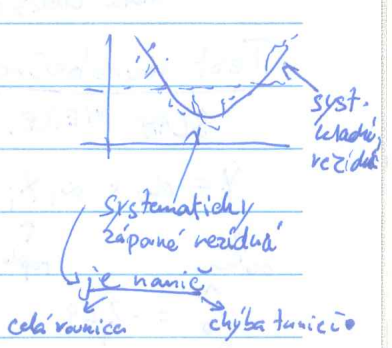 syst.
kladné
reziduá
systematicky
záporné reziduá
je nanič
celá rovnica
chýba